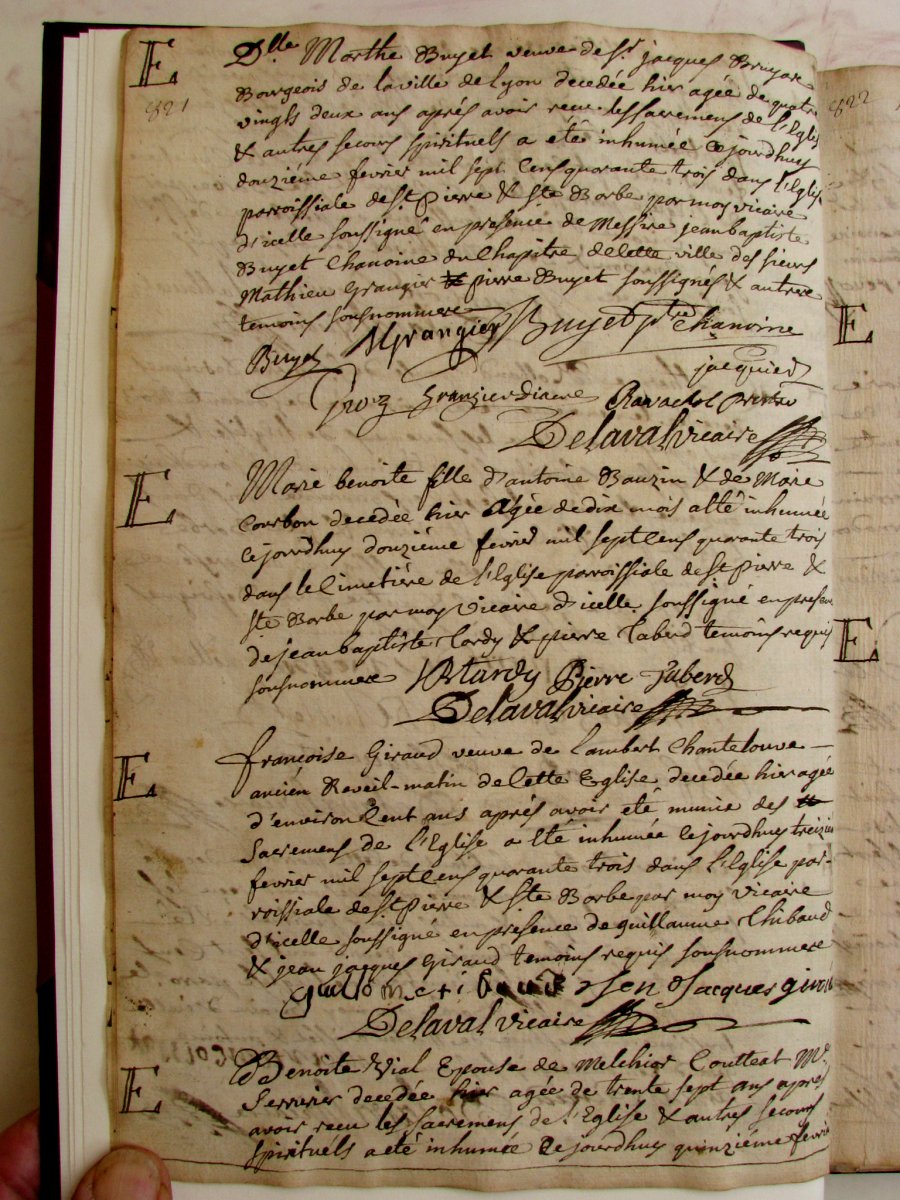 E
821
Dlle Marthe Buyet veuve de Sr. jacques Bruyas
Bourgeois de la ville de Lyon decedée hier agée de quatre
vingts deux ans aprés avoir recu les sacremens de l'Eglise
& autres secours spirituels a été inhumée ce jourdhuy
douziéme fevrier mil sept cens quarante trois dans l'Eglise
parroissiale de St. Pierre & Ste Barbe par moy vicaire
d'icelle soussigné en presence de Messire jean baptiste
Buyet Chanoine du Chapitre de cette ville des sieurs
Mathieu Grangier & pierre Buyet soussignés & autres
temoins sousnommere
Buyet MGrangier Buyet ptre chanoine
jacquier
Grangier diacre Ravachol
Delaval vicaire
E
Marie benoite fille d'antoine Bauzin & de Marie
Courbon decedée hier agée de dix mois a été inhumée
ce jourdhuy douziéme fevrier mil sept cens quarante trois
dans le Cimetiére de l'Eglise parroissiale de St Pierre &
Ste Barbe par moy vicaire d'icelle soussigné en presence
de jean baptiste tardy & pierre taberd temoins requis
sousnommere JBtardy Pierre Taberd
Delaval vicaire
E
françoise Giraud veuve de Lambert Chantelouve
ancién Reveil-matin de cette Eglise decedée hier agée
d'environ Cent ans aprés avoir eté munie des
Sacremens de l'Eglise a été inhumée ce jourdhuy treizie
fevrier mil sept cens quarante trois dans l'Eglise par-
roissiale de St. Pierre & Ste Barbe par moy vicaire
d'icelle soussigné en presence de guillaume thibaud
& jean jacques Giraud temoins requis sousnommere
guillome tibaud Jen Jacques girau
Delaval vicaire
E
Benoite Vial Epouse de Melchior Coutteat Me.
Serrurier decedée hier agée de trente sept ans aprés
avoir recu les sacremens de l'Eglise & autres secours
spirituels a été inhumée ce jourdhuy quinziéme fevrier
822
E
E